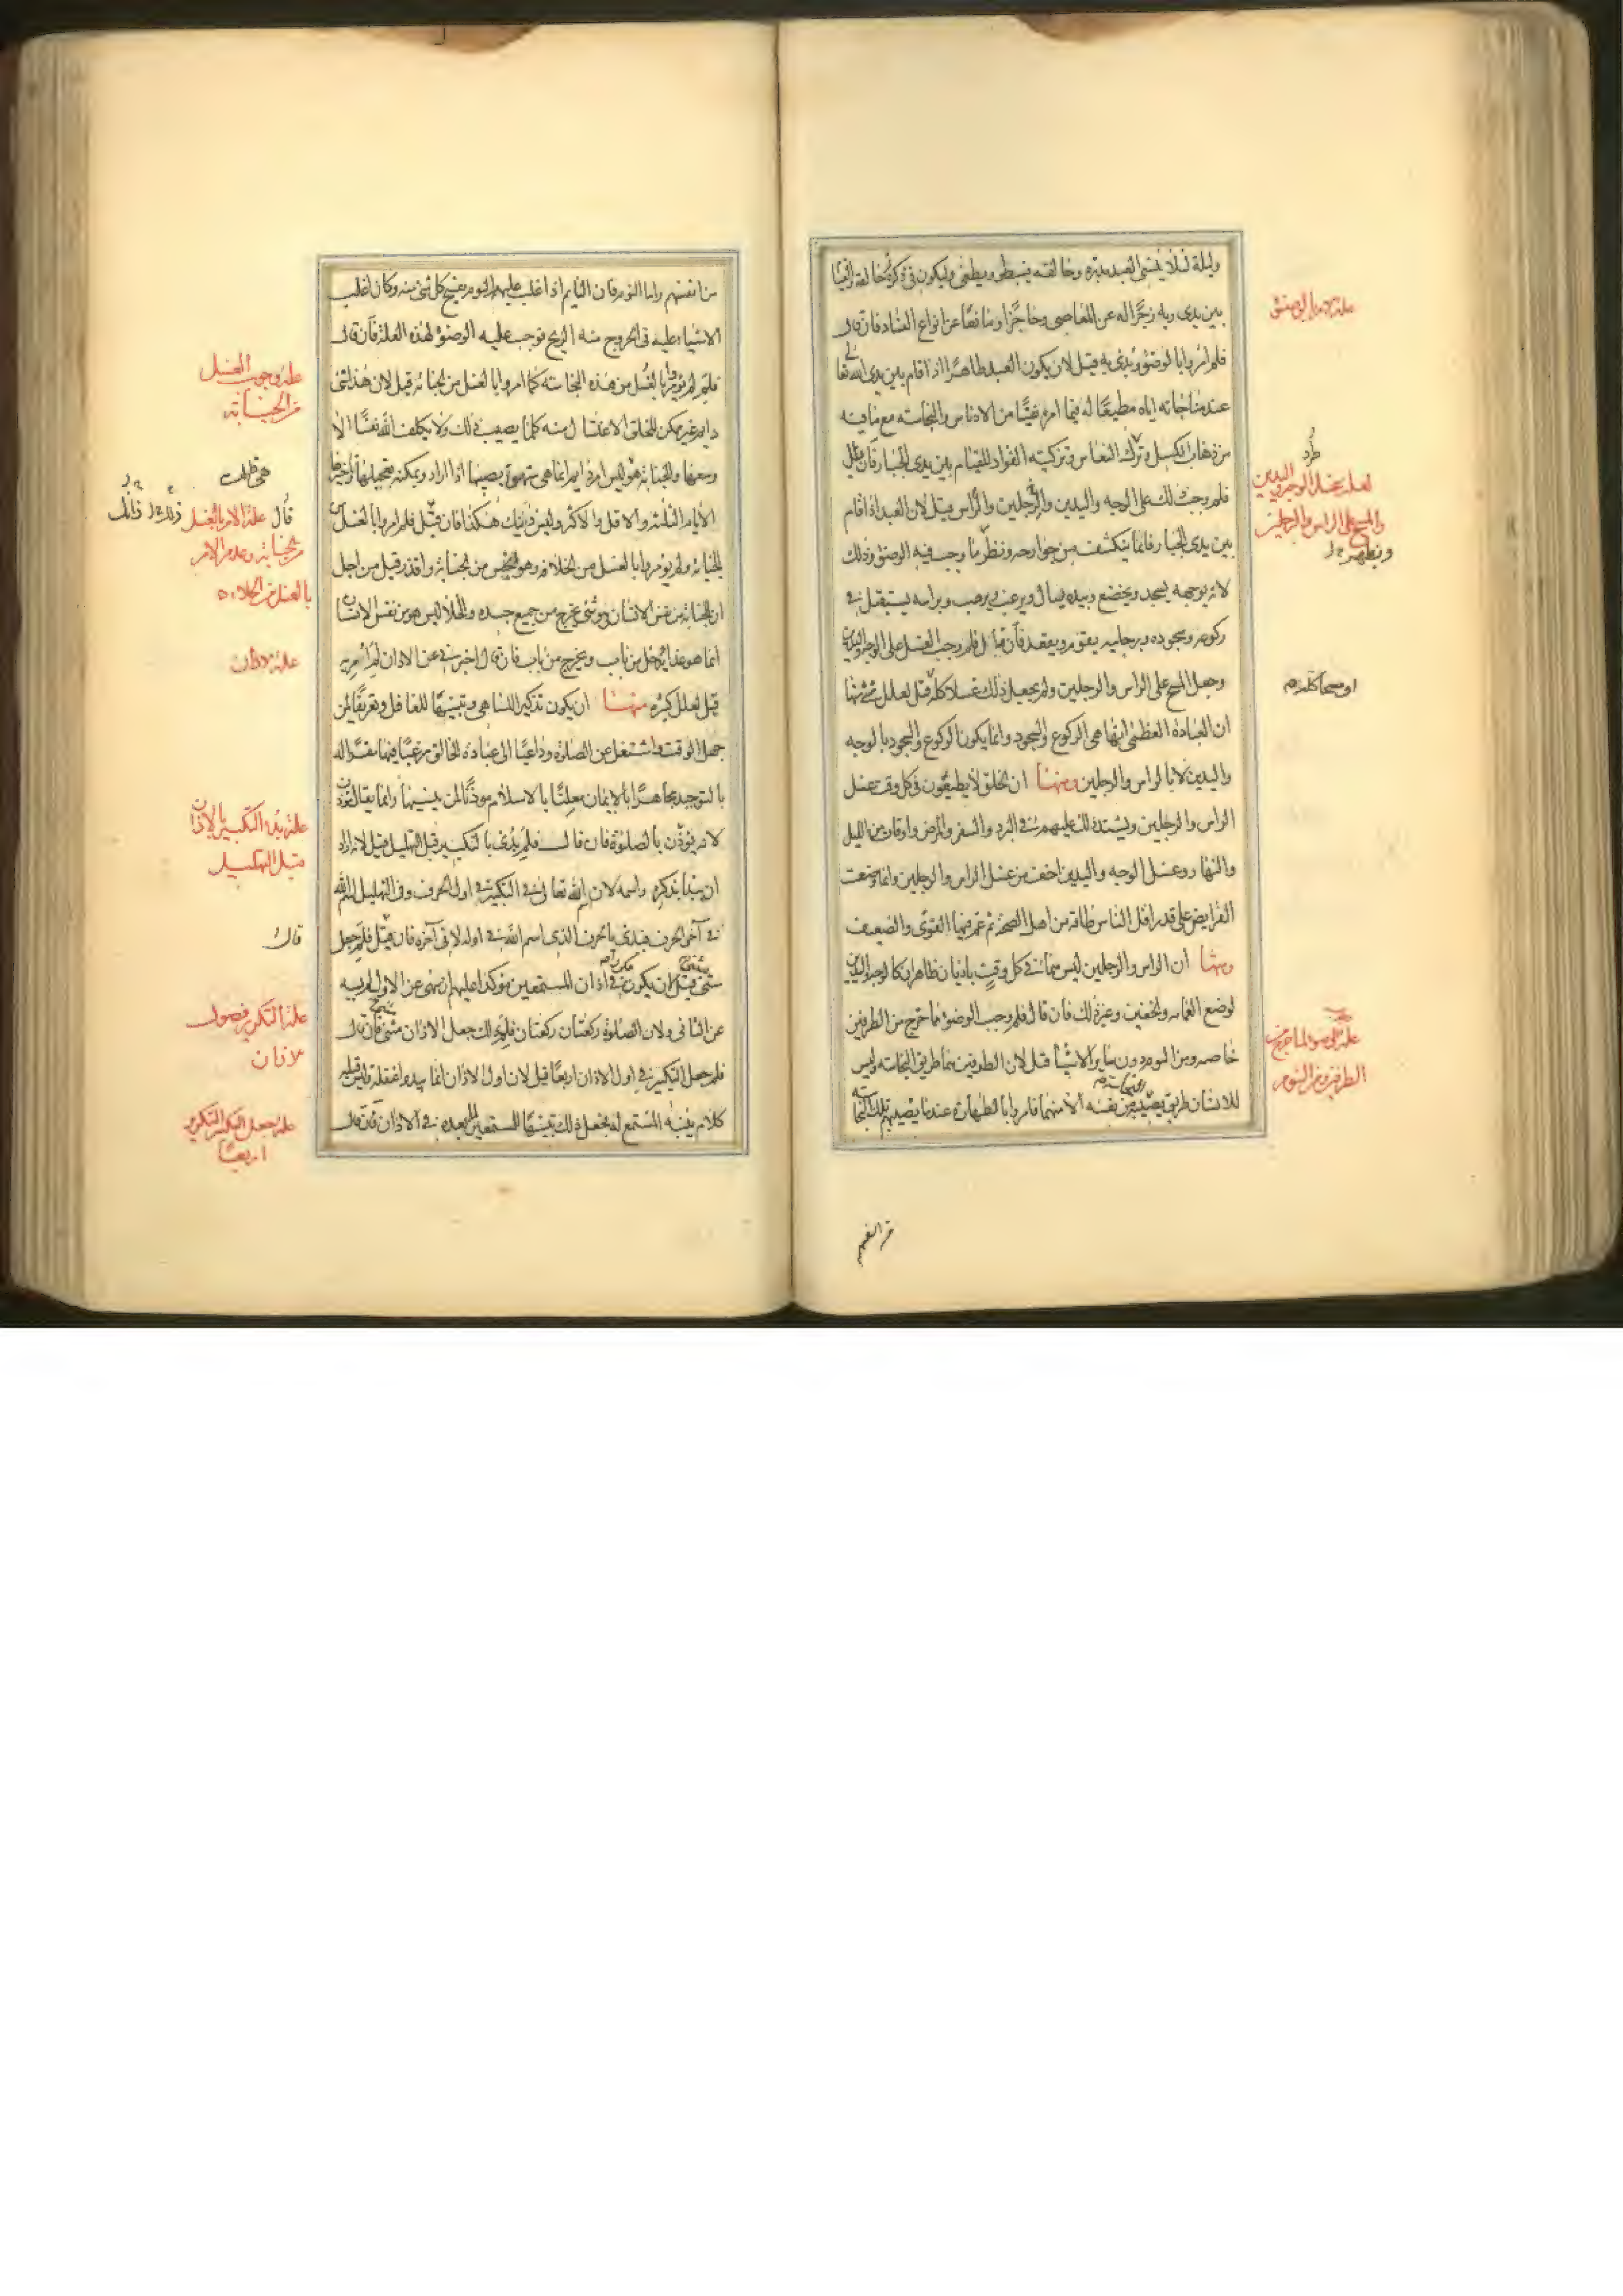 وليلة لئلا ينسى العبد مدبره وخالقه فيبطر ويطغى وليكون في ذكره لخالقه والقيام
بين يدى ربه زجرا له عن المعاصى وحاجزا ومانعا عن انواع الفساد فان قال
فلم امروا بالوضوء وبدئ به قيل لان يكون العبد طاهرا اذا قام بين يدى الله تعالى
عند مناجاته اياه مطيعا له فيما امره نقيا من الادناس والنجاسة مع ما فيه
من ذهاب الكسل وترك النعاس وتزكية الفواد للقيام بين يدى الجبار فان قال
فلم وجب ذلك على الوجه واليدين والرجلين والراس قيل لان العبد اذا قام
بين يدى الجبار فانما ينكشف من جوارحه ونظر ما وجب فيه الوضوء وذلك
لانه بوجهه يسجد ويخضع وبيده يسال ويرغب ويرهب وبراسه يستقبل فى
ركوعه وسجوده وبرجليه يقوم ويقعد فان قال فلم وجب الغسل على الوجه واليدين
وجعل المسح على الراس والرجلين ولم يجعل ذلك غسلا كله قيل لعلل شتى منها
ان العبادة العظمى انما هى الركوع والسجود وانما يكون الركوع والسجود بالوجه
واليدين لا بالراس والرجلين ومنها ان الخلق لا يطيقون فى كل وقت غسل
الراس والرجلين ويشتد ذلك عليهم فى البرد والسفر والمرض واوقات من الليل
والنهار وغسل الوجه واليدين اخف من غسل الراس والرجلين وانما وضعت
الفرايض على قدر اقل الناس طاقة من اهل الصحة ثم عم فيها القوى والضعيف
ومنها ان الراس والرجلين ليس هما فى كل وقت باديان ظاهران كالوجه واليدين
لموضع العمامة والخفين وغير ذلك فان قال فلم وجب الوضوء مما خرج من الطرفين
خاصه ومن النوم دون ساير الاشيا قيل لان الطرفين هما طريق النجاسه وليس
للانسان طريق تصيبه من نفسه الا منهما فامروا بالطهارة عند ما تصيبهم تلك النجاسة
علة الامر بالوضوء
لعلة غسل الوجه واليدين
والمسح على الراس والرجلين
او مسحا كله م
الطرفين ومن النوم
من انفسهم
من انفسهم واما النوم فان النايم اذا غلب عليه النوم يفتح كل شئ منه وكان اغلب
الاشياء عليه فى الخروج منه الريح فوجب عليه الوضوء لهذه العلة فان قال
فلم لم يؤمروا بالغسل من هذه النجاسة كما امروا بالغسل من الجنابة قيل لان هذا شئ
دايم غير ممكن للخلق الاغتسال منه كلما يصيب ذلك ولا يكلف الله نفسا الا
وسعها والجنابة هو ليس امرا دايما انما هى شهوة يصيبها اذا اراد ويمكنه تعجيلها وتاخيرها
الايام الثلثة والاقل والاكثر وليس ذينك هكذا فان قيل فلم امروا بالغسل من
الجنابة ولم يؤمروا بالغسل من الخلاء وهو انجس من الجنابة واقذر قيل من اجل
ان الجنابة من نفس الانسان وهو شئ يخرج من جميع جسده والخلا ليس هو من نفس الانسان
انما هو غذا يدخل من باب ويخرج من باب فان قال اخبرنى عن الاذان لم امر به
قيل لعلل كثيرة منها ان يكون تذكيرا للساهى وتنبيها للغافل وتعريفا لمن
جهل الوقت واشتغل عن الصلوة وداعيا الى عبادة الخالق مرغبا فيها مقرا له
بالتوحيد مجاهرا بالايمان معلنا بالاسلام موذنا لمن ينسيها وانما يقال موذن
لانه يؤذن بالصلوة فان قال فلم بدئ بالتكبير قبل التهليل قيل لانه اراد
ان يبدأ بذكره واسمه لان اسم الله تعالى فى التكبير فى اول الحرف وفى التهليل اسم الله
فى آخر الحرف فبدئ بالحرف الذى اسم الله فى اوله لا فى آخره فان قيل فلم جعل
مثنى مثنى قيل لان يكون فى اذان المستمعين مؤكدا عليهم ان سهى عن الاول لم يسه
عن الثانى ولان الصلوة ركعتان ركعتان فلذلك جعل الاذان مثنى فان قال
فلم جعل التكبير فى اول الاذان اربعا قيل لان اول الاذان انما يبدو غفلة وليس قبله
كلام ينبه المستمع له فجعل ذلك تنبيها للمستمعين لما بعده فى الاذان فان قال
علة وجوب الغسل
من الجنابة
قال
علة الامر بالغسل
من الجنابة وعدم الامر
بالغسل من الخلاء
علة الاذان
علة بدء التكبير بالاذان
قبل التهليل
قال
علة التكرير فصول
الاذان
علة جعل التكبير
اربعا